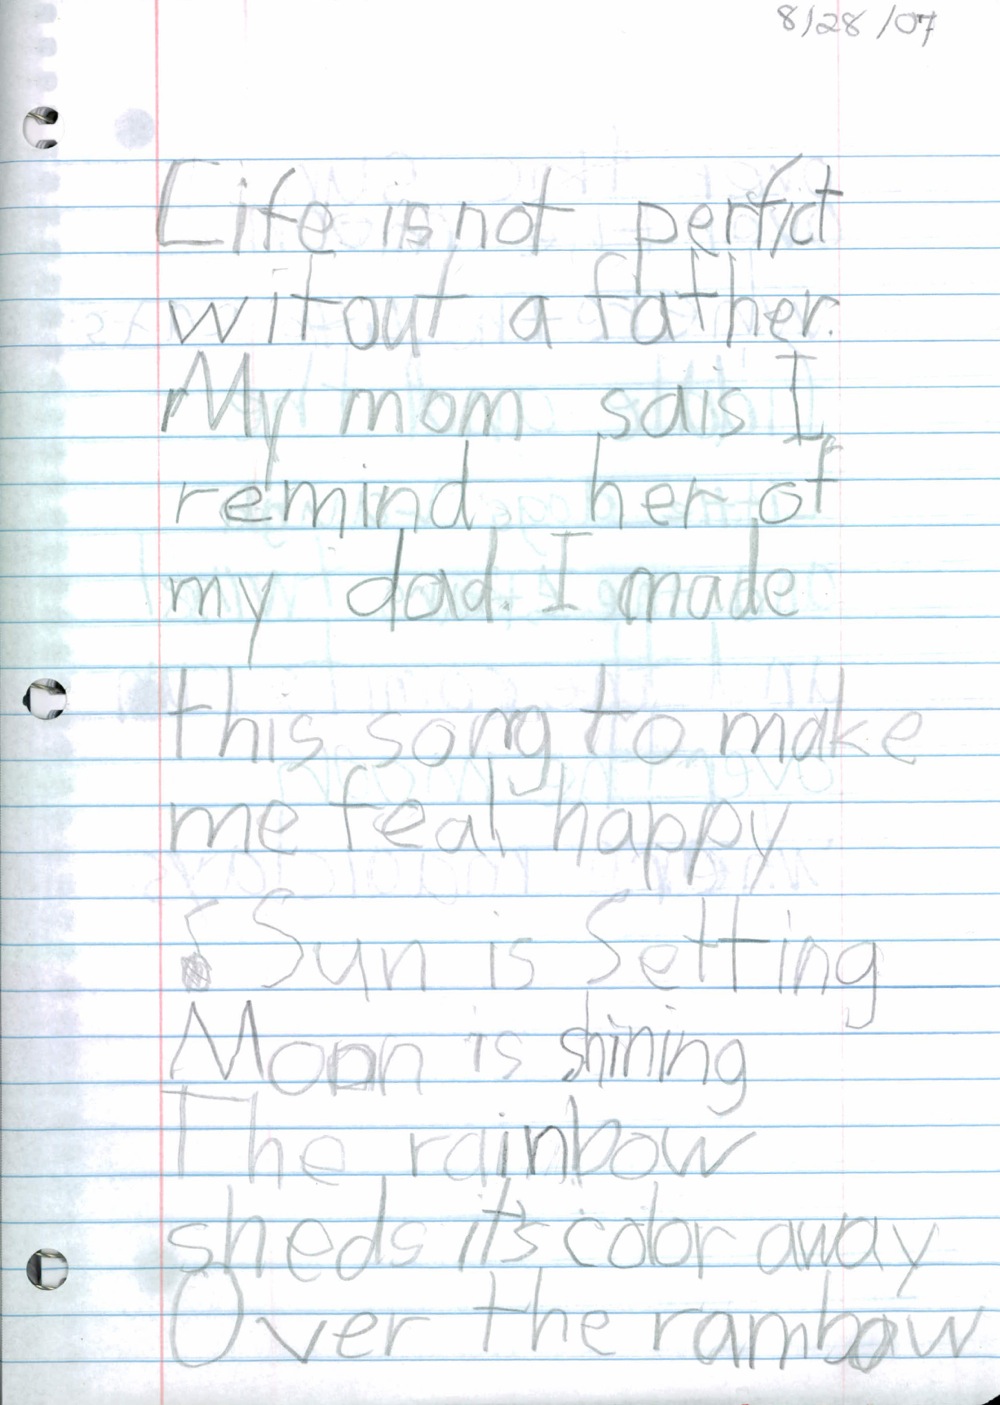 8/28/07
Life is not perfict
witout a father.
My mom sais I
remind her of
my dad. I made
this song to make
me feal happy
Sun is Setting
Moon is shining
The rainbow
sheds it's color away
Over the rainbow